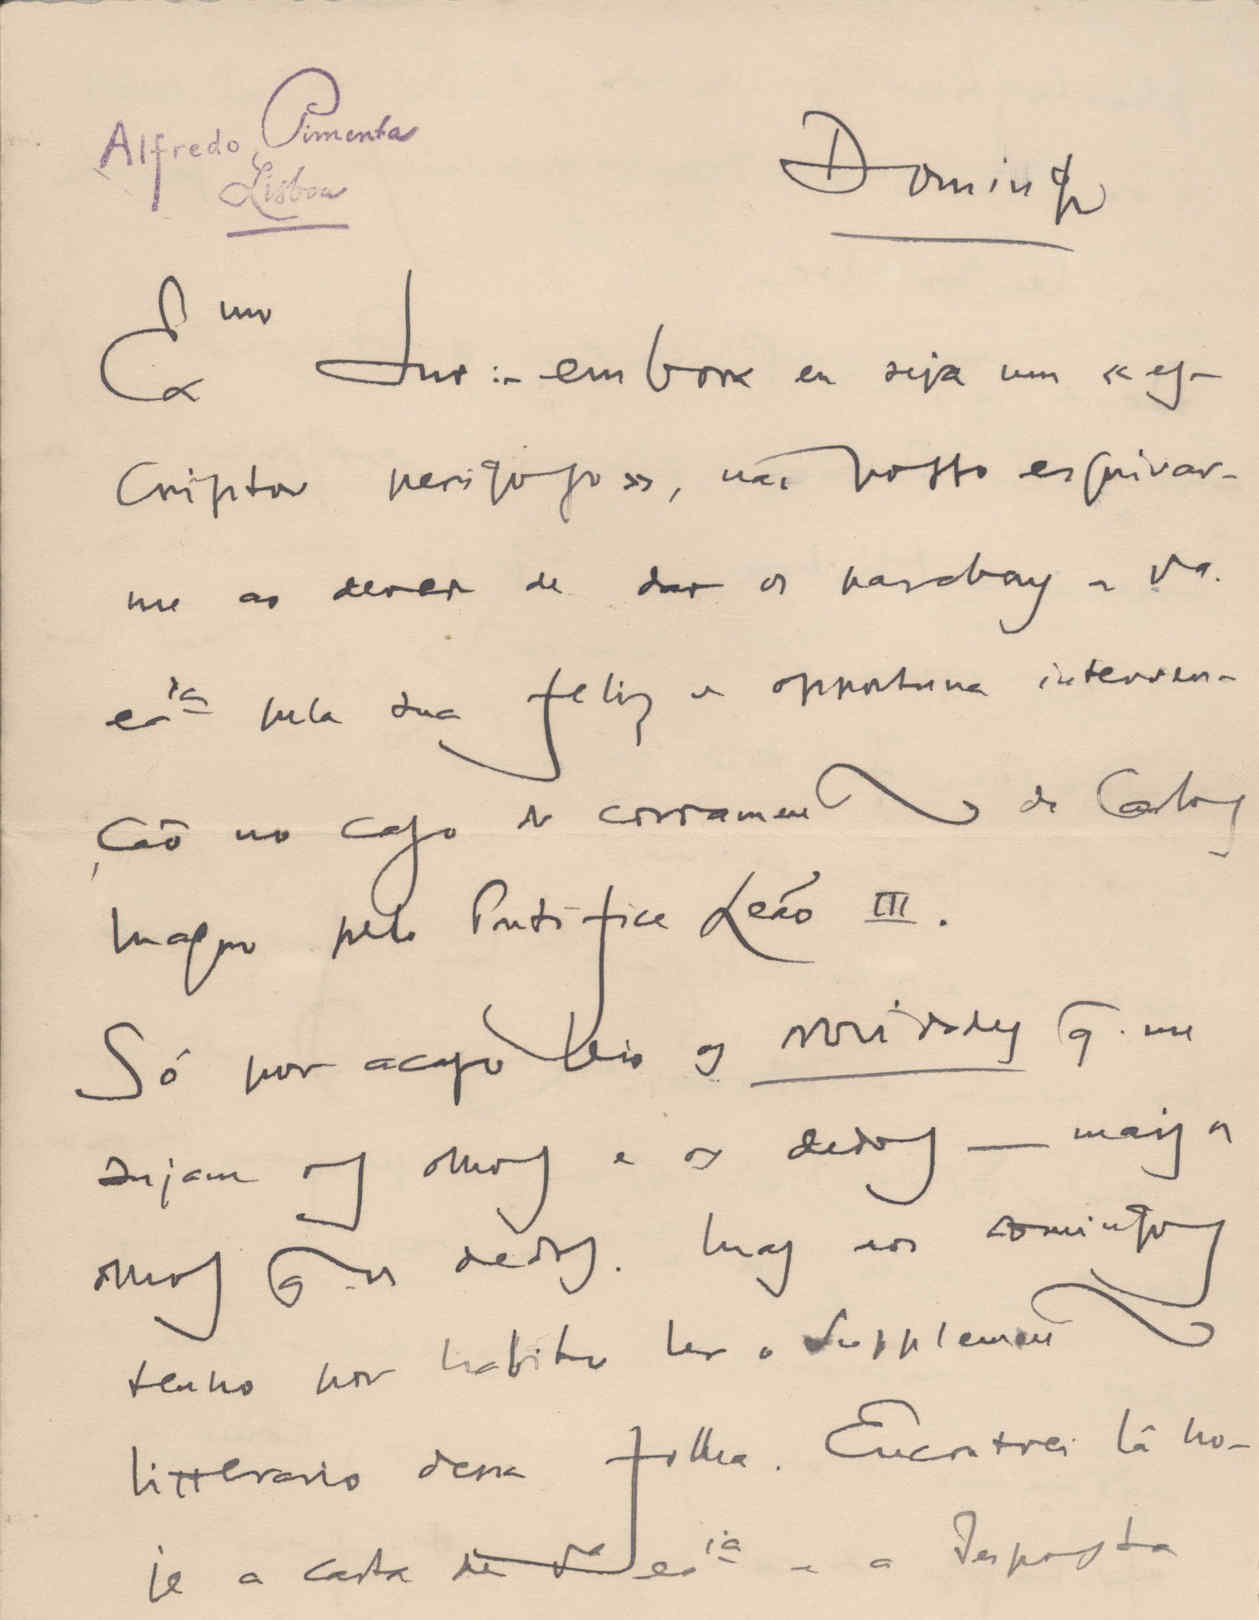 Alfredo Pimenta
Lisboa
Domingo
Exmo Snr :- embora eu seja um «es-
criptor perigoso», não posso esquivar-
me ao dever de dar os parabens a Va.
exia pela sua feliz e opportuna interven-
ção no caso do coroamento de Carlos
Magno pelo Pontifice Leão III.
Só por acaso leio as Novidades q. me
sujam os olhos e os dedos — mais os
olhos q os dedos. Mas aos domingos
tenho por habito ler o Supplemento
litterario dessa folha. Encontrei lá ho-
je a carta de Va exia e a resposta